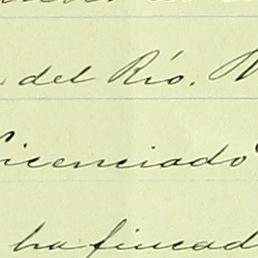 del Río.
Licenciado
ha fincad